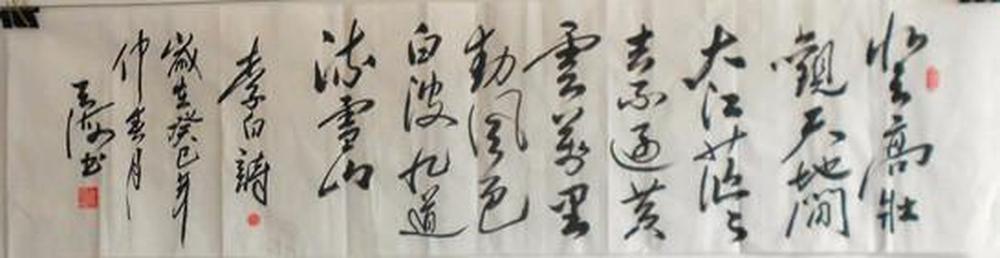 登高壯
觀天地間
大江茫々
去不還黃
雲萬里
動風色
白波九道
流雪山
李白詩
歲在癸巳年
仲春月
書